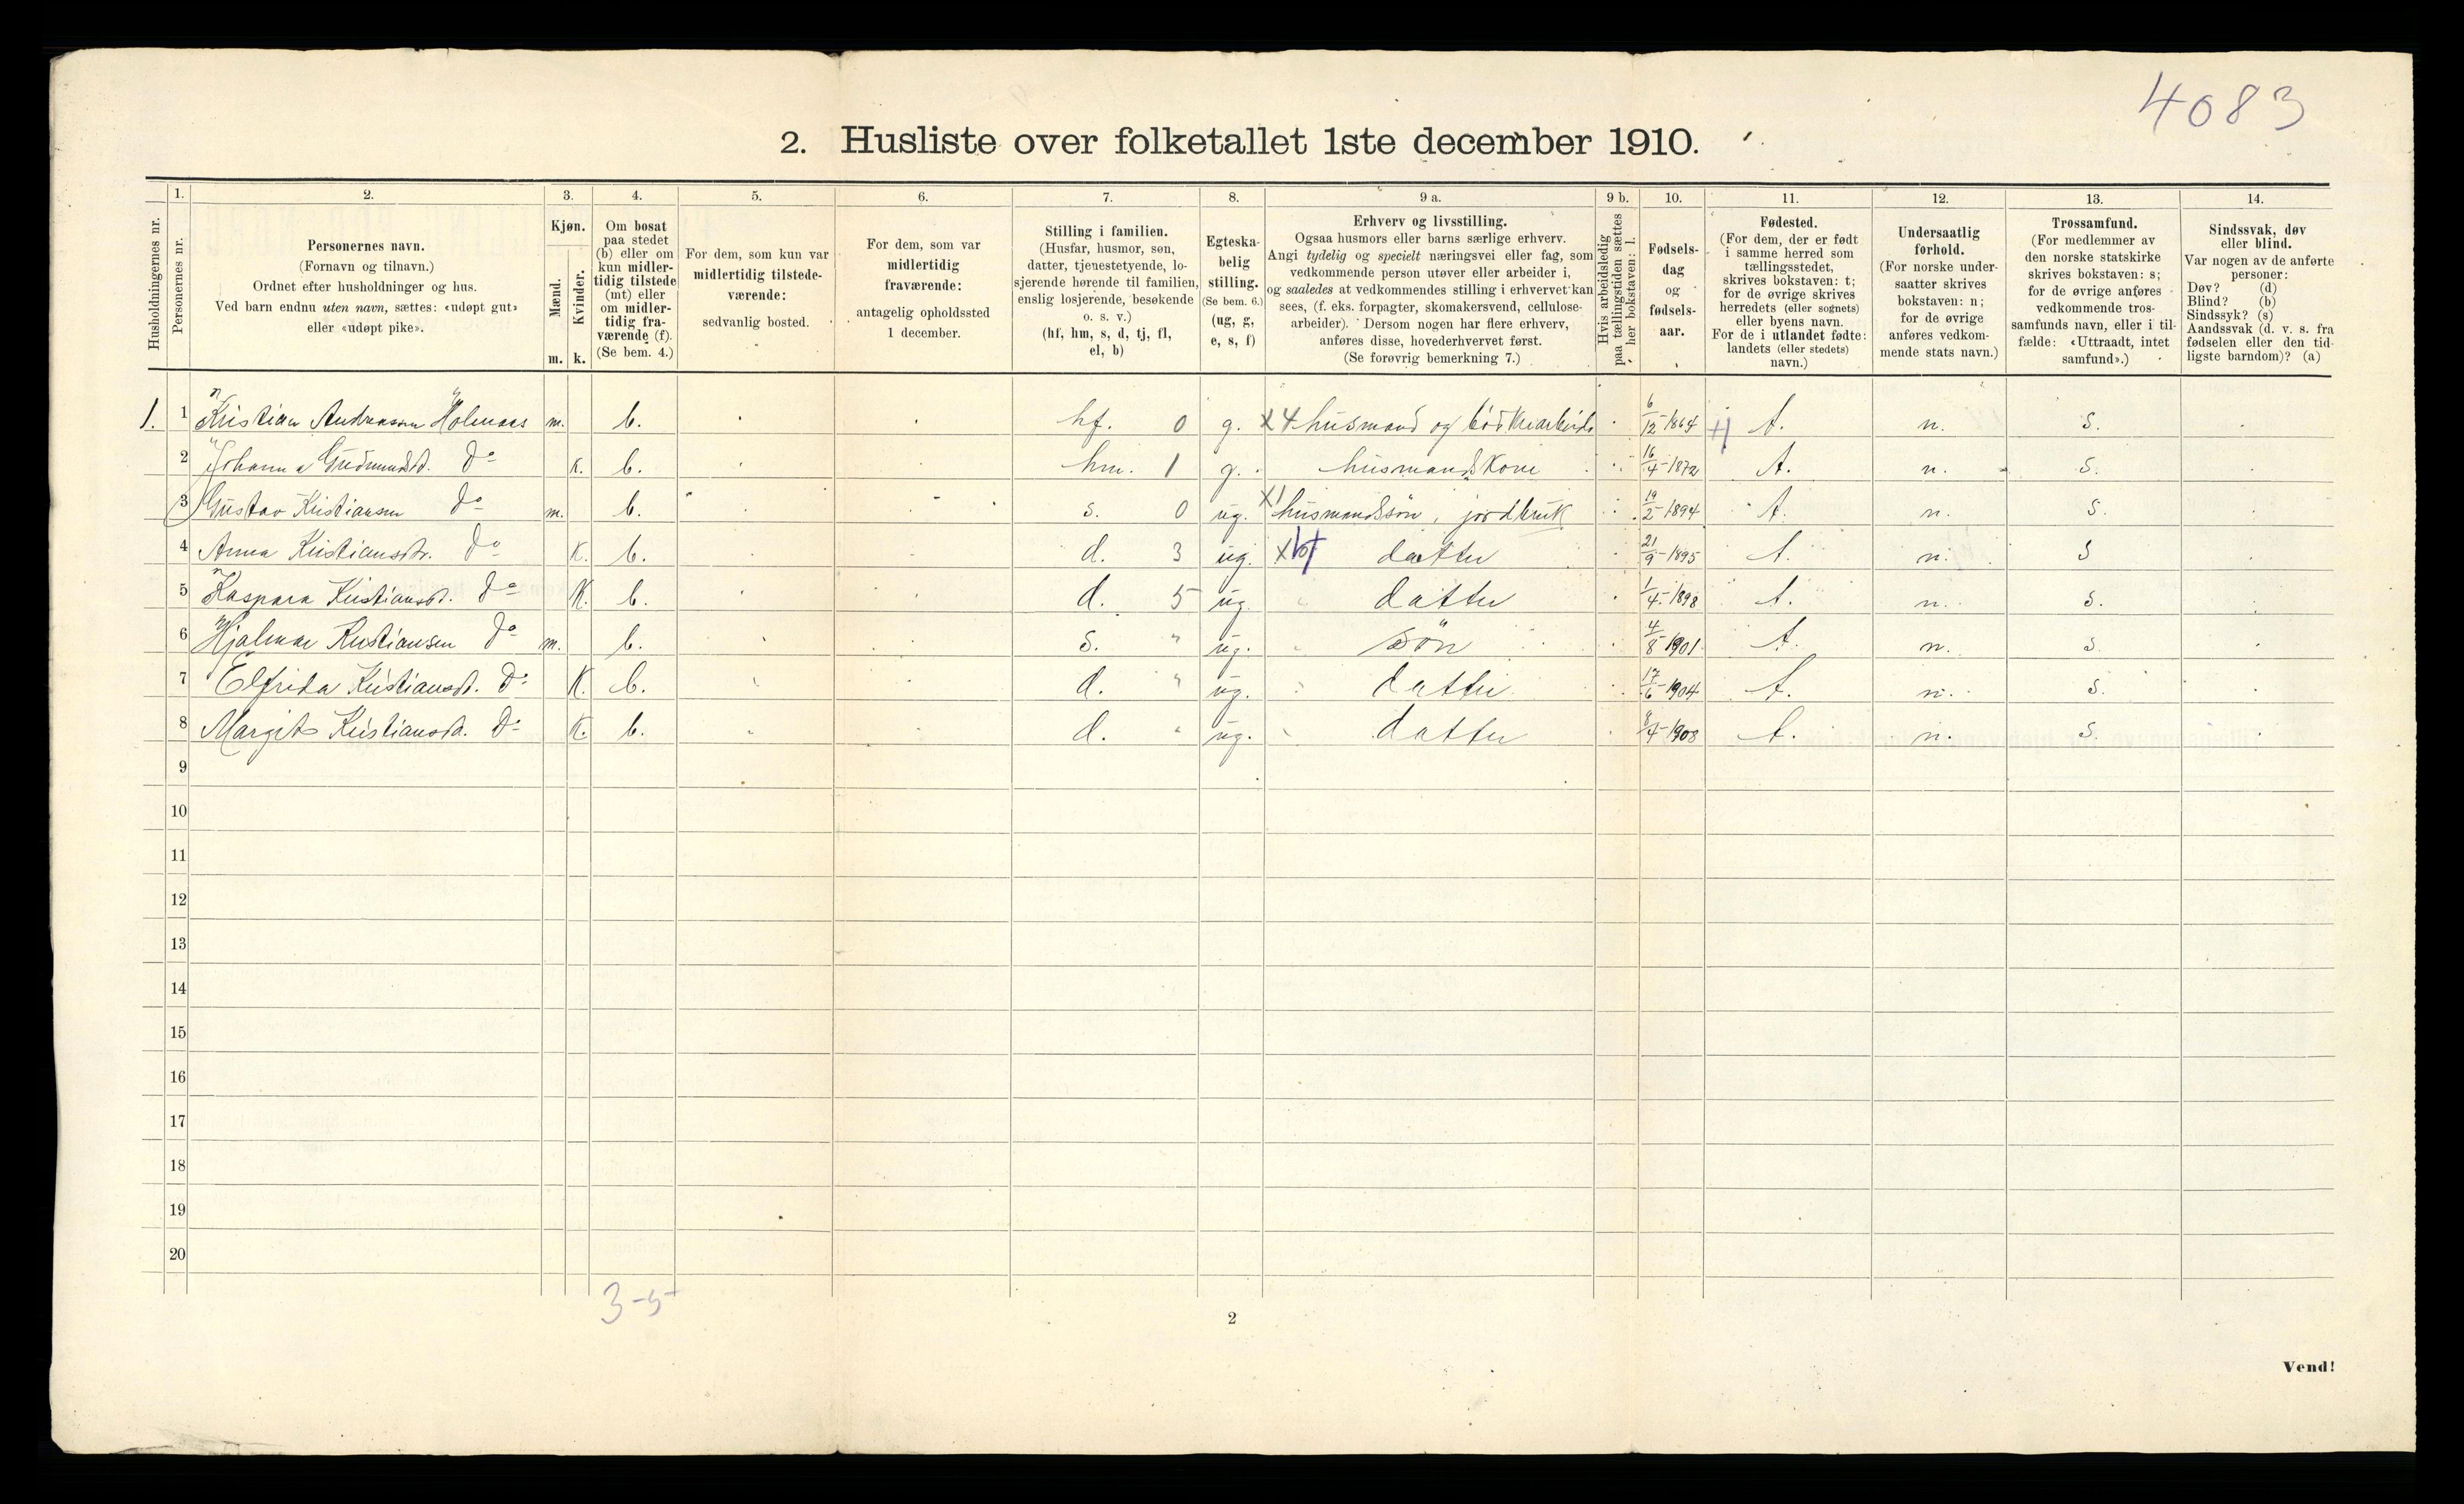 4083
2. Husliste over folketallet 1ste december 1910.
Husholdningernes nr.
1.
Personernes nr.
2.
Personernes navn.
(Fornavn og tilnavn.)
Ordnet efter husholdninger og hus.
Ved barn endnu uten navn, sættes: «udøpt gut»
eller «udøpt pike».
3.
Kjøn.
Mænd.
Kvinder.
m. k.
4.
Om bosat
paa stedet
(b) eller om
kun midler-
tidig tilstede
(mt) eller
om midler-
tidig fra-
værende (f).
(Se bem. 4.)
5.
For dem, som kun var
midlertidig tilstede-
værende:
sedvanlig bosted.
6.
For dem, som var
midlertidig
fraværende:
antagelig opholdssted
1 december.
7.
Stilling i familien.
(Husfar, husmor, søn,
datter, tjenestetyende, lo-
sjerende hørende til familien,
enslig losjerende, besøkende
o. s. v.)
(hf, hm, s, d, tj, fl,
el, b)
8.
Egteska-
belig
stilling.
(Se bem. 6.)
(ug, g,
e, s, f)
9 a.
Erhverv og livsstilling.
Ogsaa husmors eller barns særlige erhverv.
Angi tydelig og specielt næringsvei eller fag, som
vedkommende person utøver eller arbeider i,
og saaledes at vedkommendes stilling i erhvervet kan
sees, (f. eks. forpagter, skomakersvend, cellulose-
arbeider). Dersom nogen har flere erhverv,
anføres disse, hovederhvervet først.
(Se forøvrig bemerkning 7.)
9 b.
Hvis arbeidsledig
paa tællingstiden sættes
her bokstaven: l.
10.
Fødsels-
dag
og
fødsels-
aar.
11.
Fødested.
(For dem, der er født
i samme herred som
tællingsstedet,
skrives bokstaven: t;
for de øvrige skrives
herredets (eller sognets)
eller byens navn.
For de i utlandet fødte:
landets (eller stedets)
navn.)
12.
Undersaatlig
forhold.
(For norske under-
saatter skrives
bokstaven: n;
for de øvrige
anføres vedkom-
mende stats navn.)
13.
Trossamfund.
(For medlemmer av
den norske statskirke
skrives bokstaven: s;
for de øvrige anføres
vedkommende tros-
samfunds navn, eller i til-
fælde: «Uttraadt, intet
samfund».)
14.
Sindssvak, døv
eller blind.
Var nogen av de anførte
personer:
Døv? (d)
Blind? (b)
Sindssyk? (s)
Aandssvak (d. v. s. fra
fødselen eller den tid-
ligste barndom)? (a)
1. 1 Kristian Andreassen Holmaas m. b. hf. 0 g. x4 husmand og 6/12-1864 t. n. s.
2 Johanna Gudmundsd. do k. b. hm. 1 g. husmandskone 16/4-1872 t. n. s.
3 Gustav Kristiansen do m. b. s. 0 ug. x1 husmandssøn, jordbruk 19/2-1894 t. n. s.
4 Anna Kristiansdr. do k. b. d. 3 ug. x datter 21/9-1895 t. n. s
5 Kaspara Kristiansd. do k. b. d. 5 ug. datter 1/4-1898 t. n. s.
6 Hjalmar Kristiansen do m. b. s. " ug. søn 4/8-1901 t. n. s.
7 Elfrida Kristiansd. do k. b. d. " ug. datter 17/6-1904 t. n. s.
8 Margit Kristiansd. do k. b. d. " ug. datter 8/4-1908 t. n. s.
9
10
11
12
13
14
15
16
17
18
19
20
3-5
2
Vend!